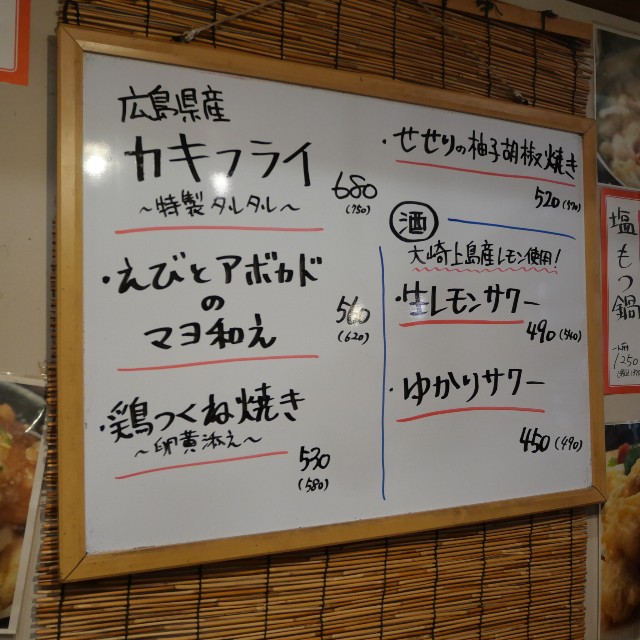 広島県産
・カキフライ
～特製タルタル～
680
(750)
・えびとアボカド
の
マヨ和え
560
(620)
・鶏つくね焼き
～卵黄添え～
530
(580)
・せせりの柚子胡椒焼き
520(570)
酒
大崎上島産レモン使用!
・生レモンサワー
490(540)
・ゆかりサワー
450(490)
塩もつ鍋
1250